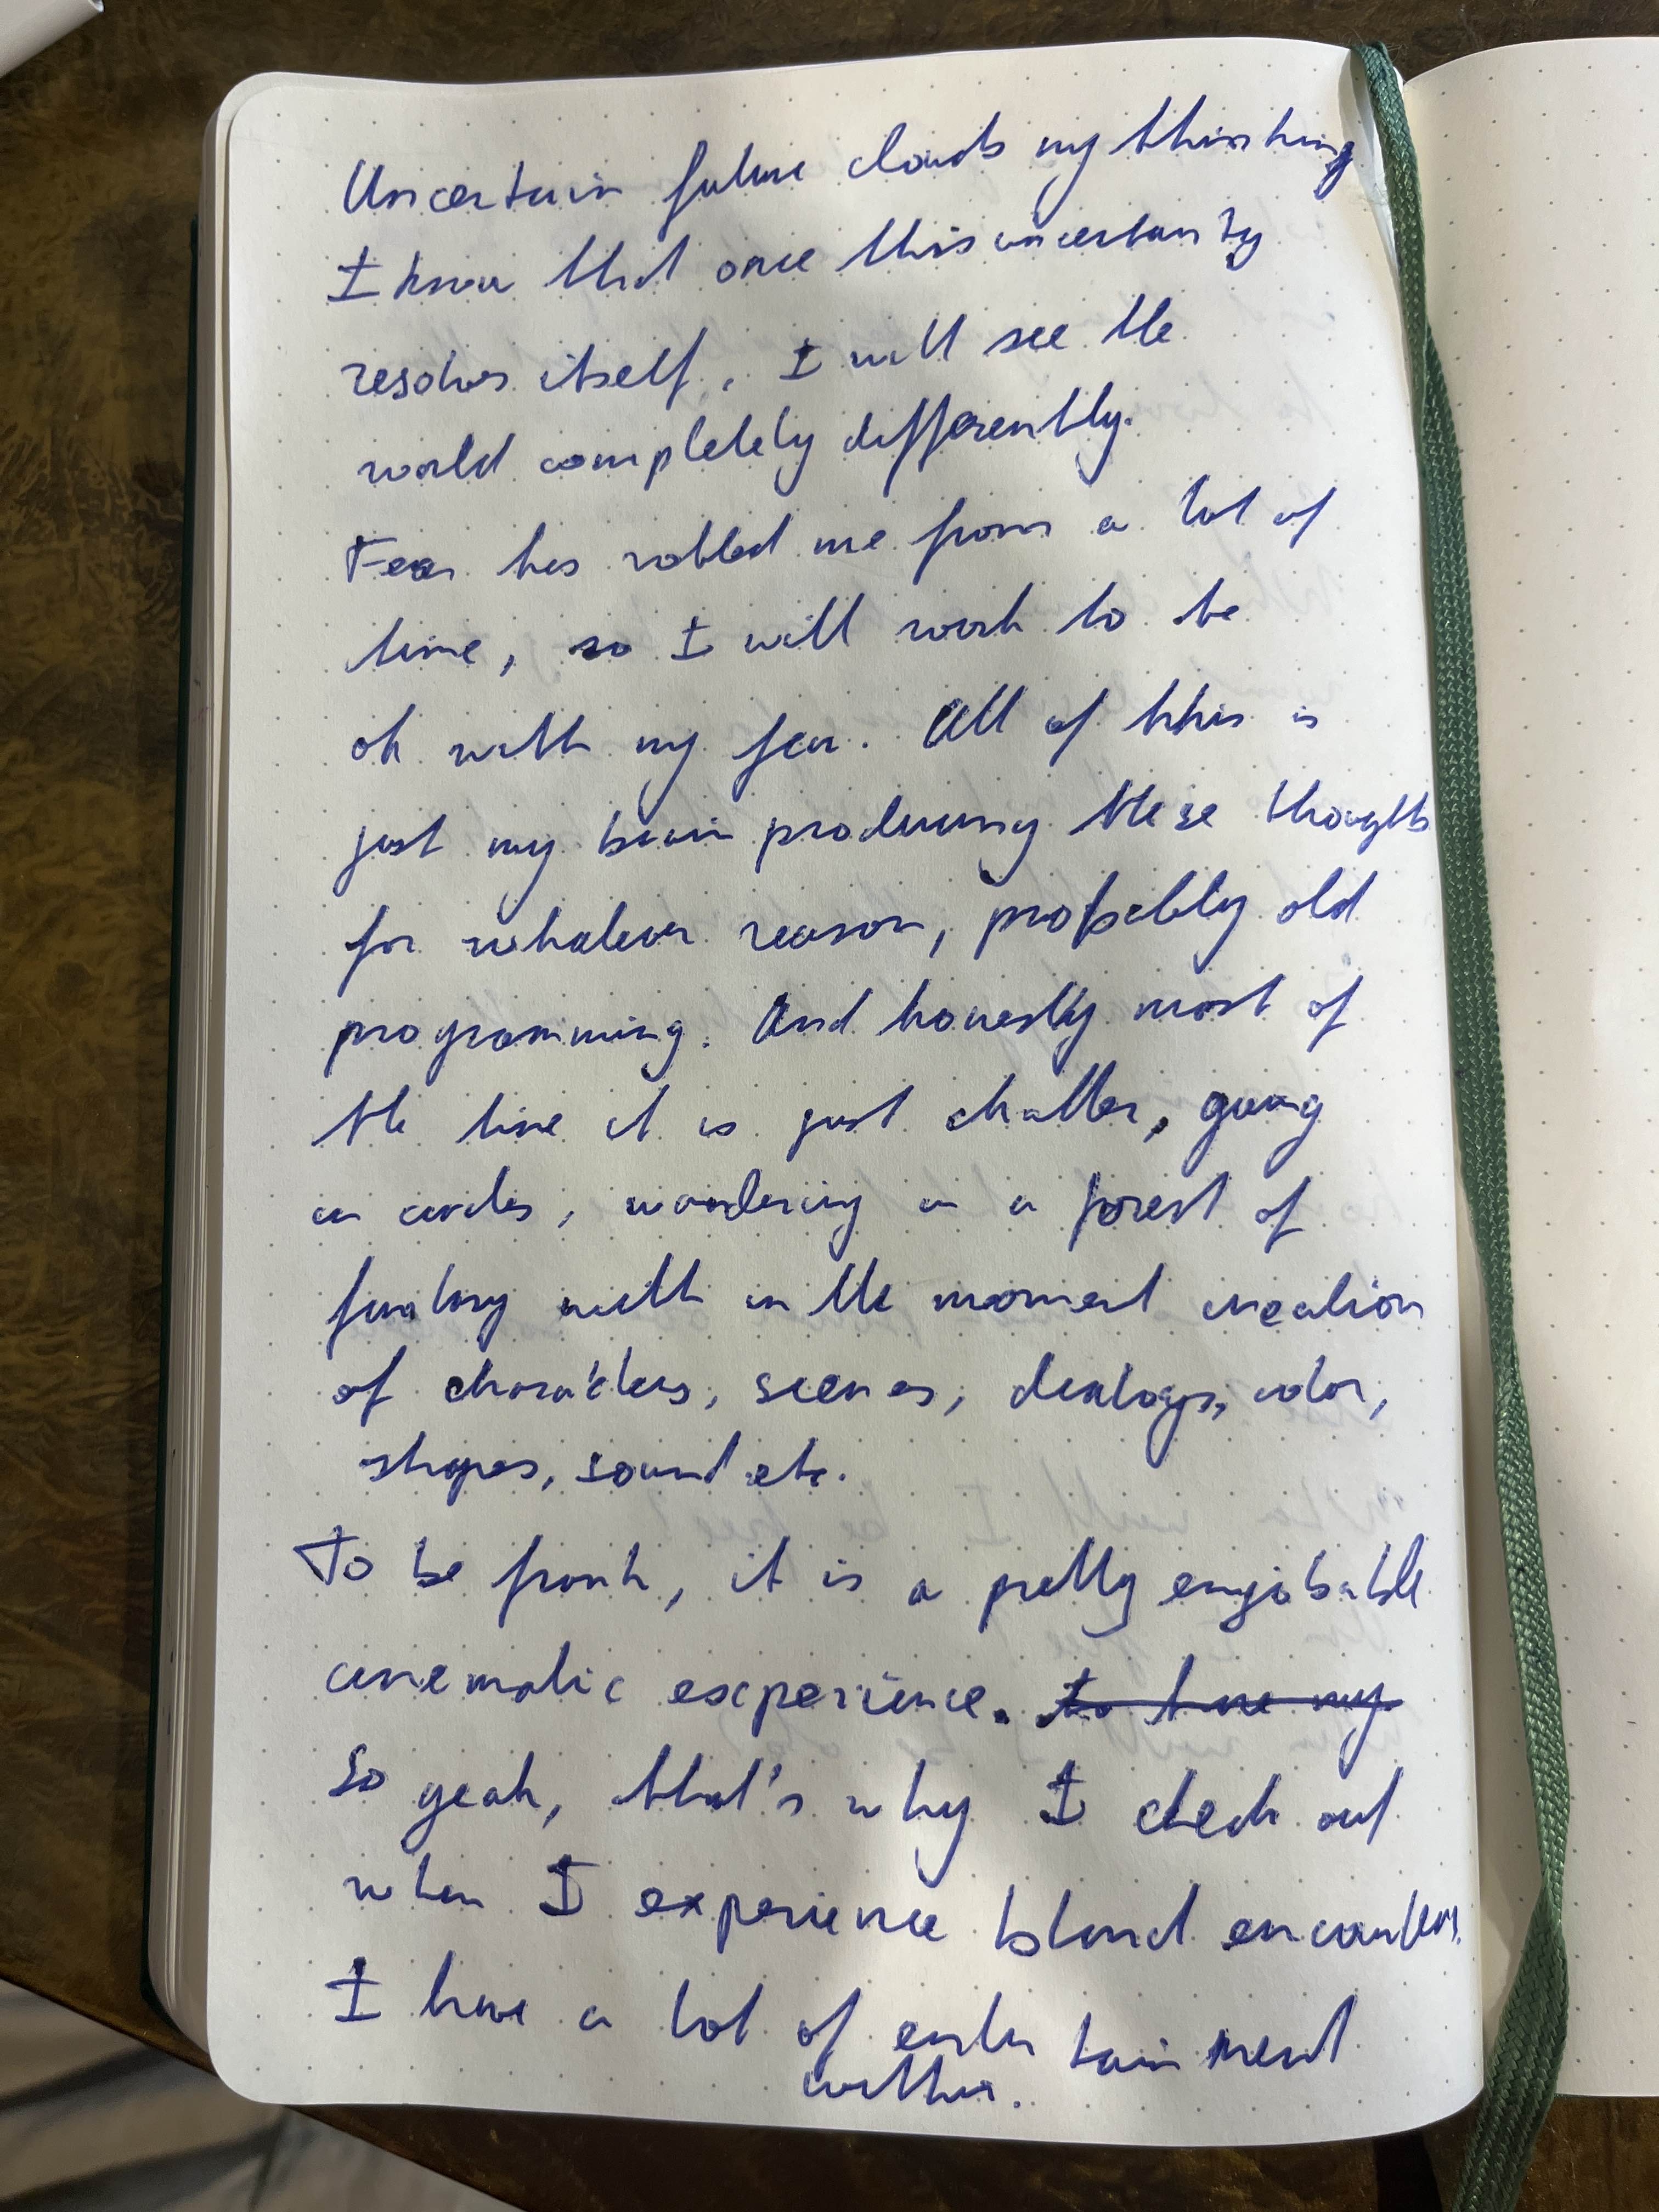 Uncertain future clouds my thinking
I know that once this uncertainty
resolves itself, I will see the
world completely differently.
Fear has robbed me from a lot of
time, so I will work to be
ok with my fear. All of this is
just my brain producing these thoughts
for whatever reason, probably old
programming. And honestly most of
the time it is just chatter, going
in circles, wandering in a forest of
fantasy with in the moment creation
of characters, scenes, dialogs, color,
shapes, sound etc.
To be frank, it is a pretty enjobable
cinematic experience. to tune my
So yeah, that's why I check out
when I experience bland encounters.
I have a lot of entertainment
within.